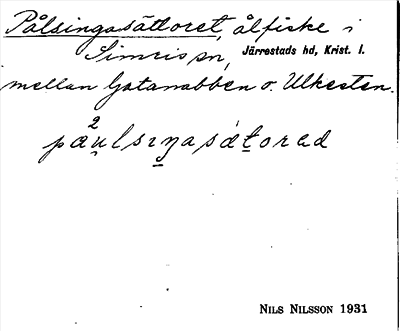 Pålsingasätloret, ålfiske i
Simris sn, Järrestads hd, Krist. l.
mellan Gatanabben o. Ulkesten.
NILS NILSSON 1931